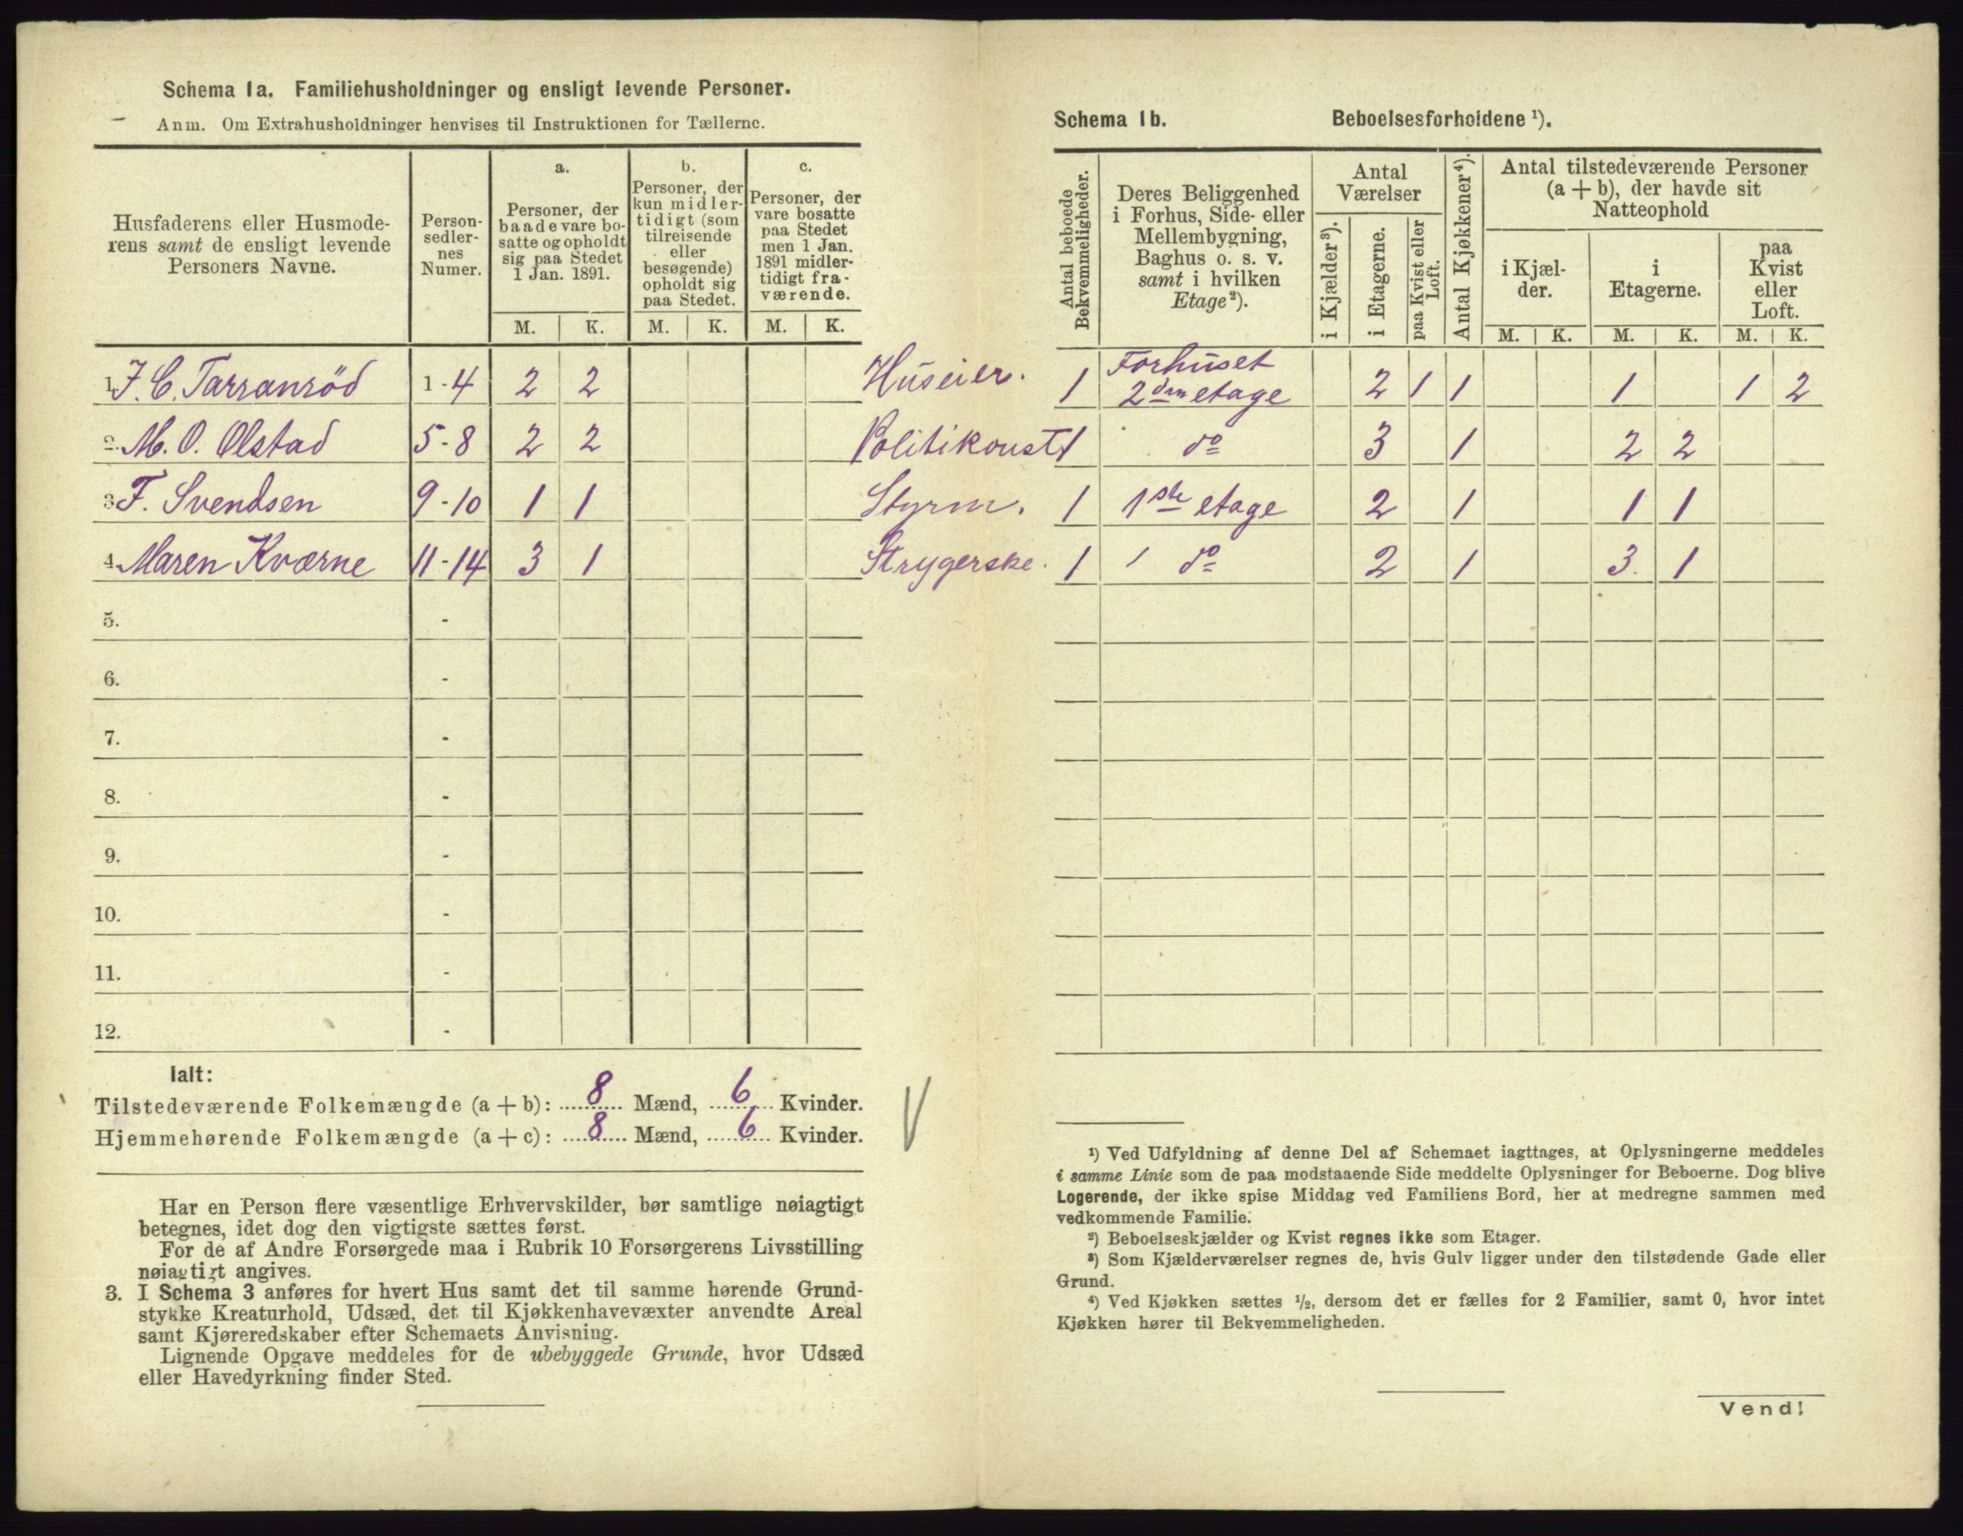 Schema 1a. Familiehusholdninger og ensligt levende Personer.
Anm. Om Extrahusholdninger henvises til Instruktionen for Tællerne.
Husfaderens eller Husmode-
rens samt de ensligt levende
Personers Navne.
Person-
sedler-
nes
Numer.
a.
Personer, der
baade vare bo-
satte og opholdt
sig paa Stedet
1 Jan. 1891.
b.
Personer, der
kun midler-
tidigt (som
tilreisende
eller
besøgende)
opholdt sig
paa Stedet.
c.
Personer, der
vare bosatte
paa Stedet
men 1 Jan.
1891 midler-
tidigt fra-
værende.
M. K. M. K. M. K.
1. J. C. Tarranröd 1-4 2 2 Huseier.
2. M. O. Olstad 5-8 2 2 Politikonst
3. F. Svendsen 9-10 1 1 Styrm.
4. Maren Kværne 11-14 3 1 Strygerske.
5. -
6. -
7. -
8. -
9. -
10. -
11. -
12. -
Ialt:
Tilstedeværende Folkemængde (a + b): 8 Mænd, 6 Kvinder.
Hjemmehørende Folkemængde (a + c): 8 Mænd, 6 Kvinder.
Har en Person flere væsentlige Erhvervskilder, bør samtlige nøiagtigt
betegnes, idet dog den vigtigste sættes først.
For de af Andre Forsørgede maa i Rubrik 10 Forsørgerens Livsstilling
nøiagtigt angives.
3. I Schema 3 anføres for hvert Hus samt det til samme hørende Grund-
stykke Kreaturhold, Udsæd, det til Kjøkkenhavevæxter anvendte Areal
samt Kjøreredskaber efter Schemaets Anvisning.
Lignende Opgave meddeles for de ubebyggede Grunde, hvor Udsæd
eller Havedyrkning finder Sted.
Schema 1b. Beboelsesforholdene ¹).
Antal beboede
Bekvemmeligheder.
Deres Beliggenhed
i Forhus, Side- eller
Mellembygning,
Baghus o. s. v.
samt i hvilken
Etage²).
Antal
Værelser
i Kjælder³).
i Etagerne.
paa Kvist eller
Loft.
Antal Kjøkkener⁴).
Antal tilstedeværende Personer
(a + b), der havde sit
Natteophold
i Kjæl-
der.
i
Etagerne.
paa
Kvist
eller
Loft.
M. K. M. K. M. K.
1 Forhuset
2den etage 2 1 1 1 1 2
1 do 3 1 2 2
1 1ste etage 2 1 1 1
1 do 2 1 3. 1
¹) Ved Udfyldning af denne Del af Schemaet iagttages, at Oplysningerne meddeles
i samme Linie som de paa modstaaende Side meddelte Oplysninger for Beboerne. Dog blive
Logerende, der ikke spise Middag ved Familiens Bord, her at medregne sammen med
vedkommende Familie.
²) Beboelseskjælder og Kvist regnes ikke som Etager.
³) Som Kjælderværelser regnes de, hvis Gulv ligger under den tilstødende Gade eller
Grund.
⁴) Ved Kjøkken sættes ½, dersom det er fælles for 2 Familier, samt 0, hvor intet
Kjøkken hører til Bekvemmeligheden.
Vend!